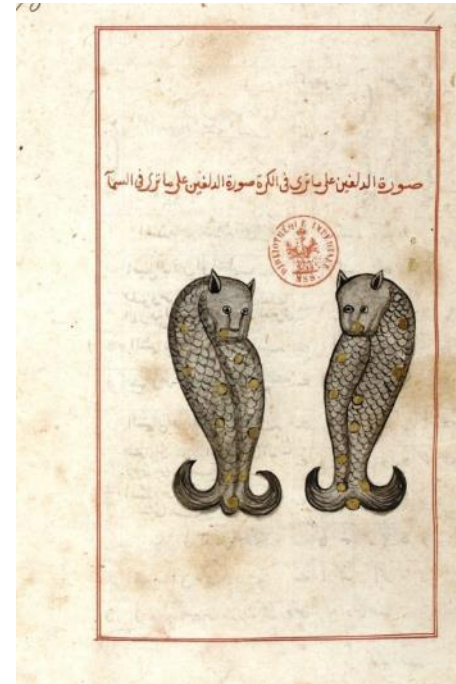 صورة الدلفين على ما ترى فى الكرة صورة الدلفين على ما ترى فى السمآ
BIBLIOTHÈQUE IMPÉRIALE
MSS.